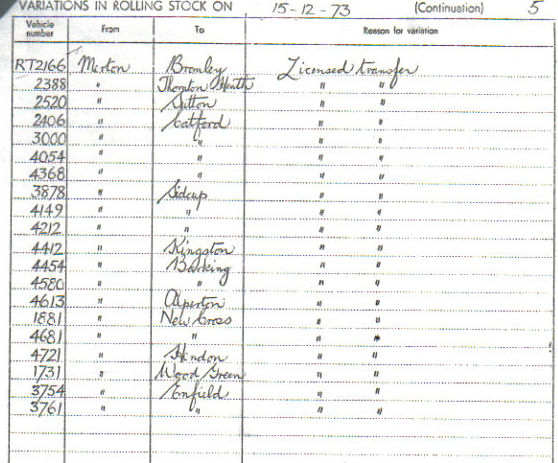 VARIATIONS IN ROLLING STOCK ON 15-12-73 (Continuation) 5
Vehicle number From To Reason for variation
RT2166 Merton Bromley Licensed transfer
2388 " Thornton Heath " "
2520 " Sutton " "
2406 " Catford " "
3000 " " " "
4054 " " " "
4368 " " " "
3878 " Sidcup " "
4149 " " " "
4212 " " " "
4412 " Kingston " "
4454 " Barking " "
4580 " " " "
4613 " Alperton " "
1881 " New Cross " "
4681 " " " "
4721 " Hendon " "
1731 " Wood Green " "
3754 " Enfield " "
3761 " " " "